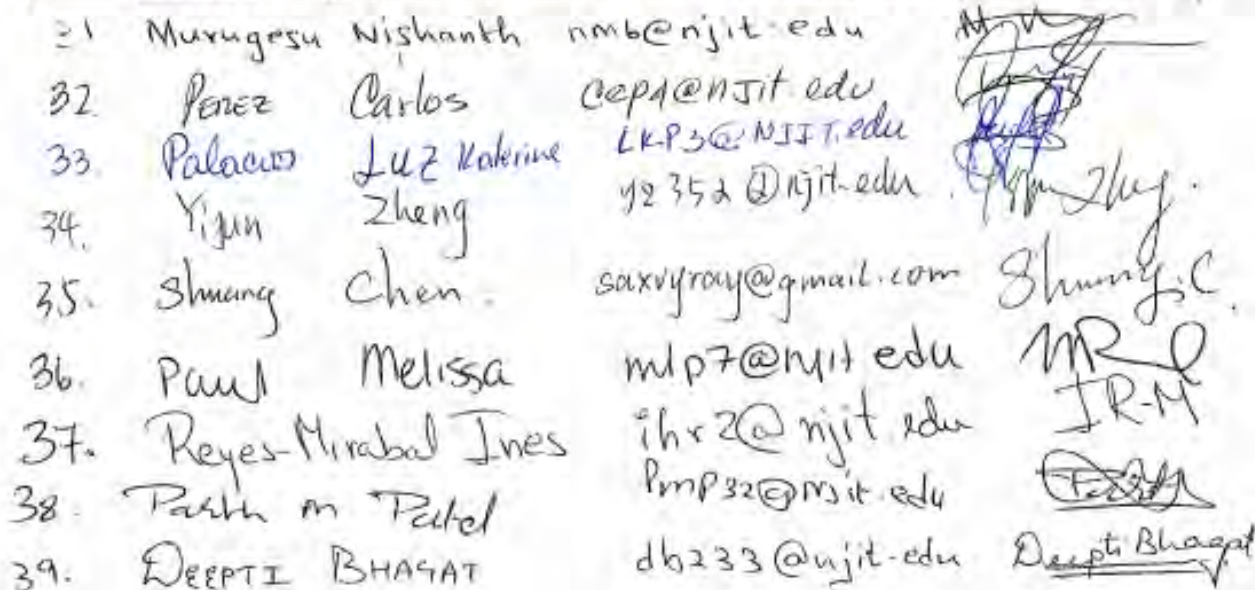 31 Murugesu Nishanth nmb@njit.edu
32 PEREZ Carlos cep4@njit.edu
33. Palacios Luz Katerine LKP3@NJIT.edu
34. Yijun Zheng yz352@njit.edu
35. Shuang Chen. saxvyray@gmail.com Shuang.C.
36. Paul Melissa mlp7@njit.edu
37. Reyes-Mirabal Ines ihr2@njit.edu IR-M
38. Parth M Patel Pmp32@njit.edu
39. DEEPTI BHAGAT db233@njit.edu Deepti Bhagat